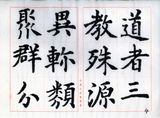 道者三
教殊源
異軫類
聚群分